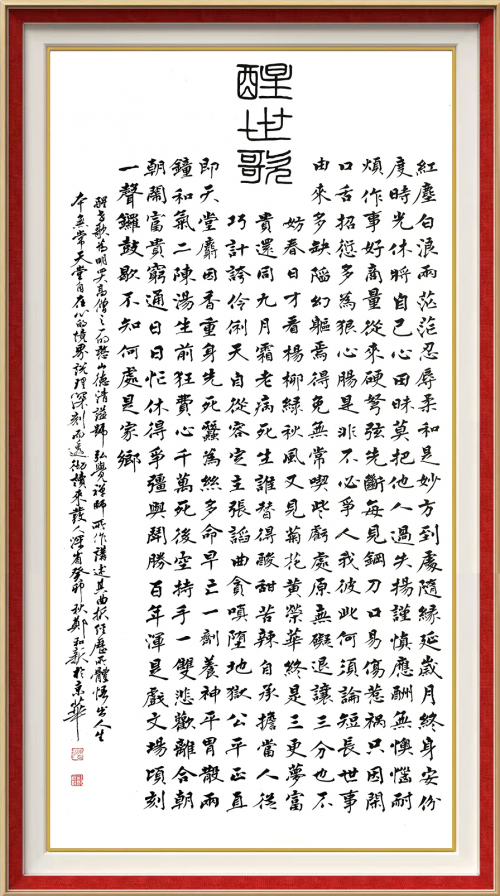 醒世歌
紅塵白浪兩茫茫忍辱柔和是妙方到處隨緣延歲月終身安份
度時光休將自己心田昧莫把他人過失揚謹慎應酬無懊惱耐
煩作事好商量從來硬弩弦先斷每見鋼刀口易傷惹禍只因閑
口舌招愆多為狠心腸是非不必爭人我彼此何須論短長世事
由來多缺陷幻軀焉得免無常喫些虧處原無礙退讓三分也不
妨春日才看楊柳綠秋風又見菊花黃榮華終是三更夢富
貴還同九月霜老病死生誰替得酸甜苦辣自承擔當人從
巧計誇伶俐天自從容定主張諂曲貪嗔墮地獄公平正直
即天堂麝因香重身先死蠶為絲多命早亡一劑養神平胃散兩
鐘和氣二陳湯生前狂費心千萬死後空持手一雙悲歡離合朝
朝鬧富貴窮通日日忙休得爭彊與鬥勝百年渾是戲文場頃刻
一聲鑼鼓歇不知何處是家鄉
醒世歌為明末高僧之一的憨山德清謚號弘覺禪師所作講述其曲折經歷所體悟出人生
本無常天堂自在心的境界說理深刻而透徹讀來發人深省癸卯秋鄭和新於京華